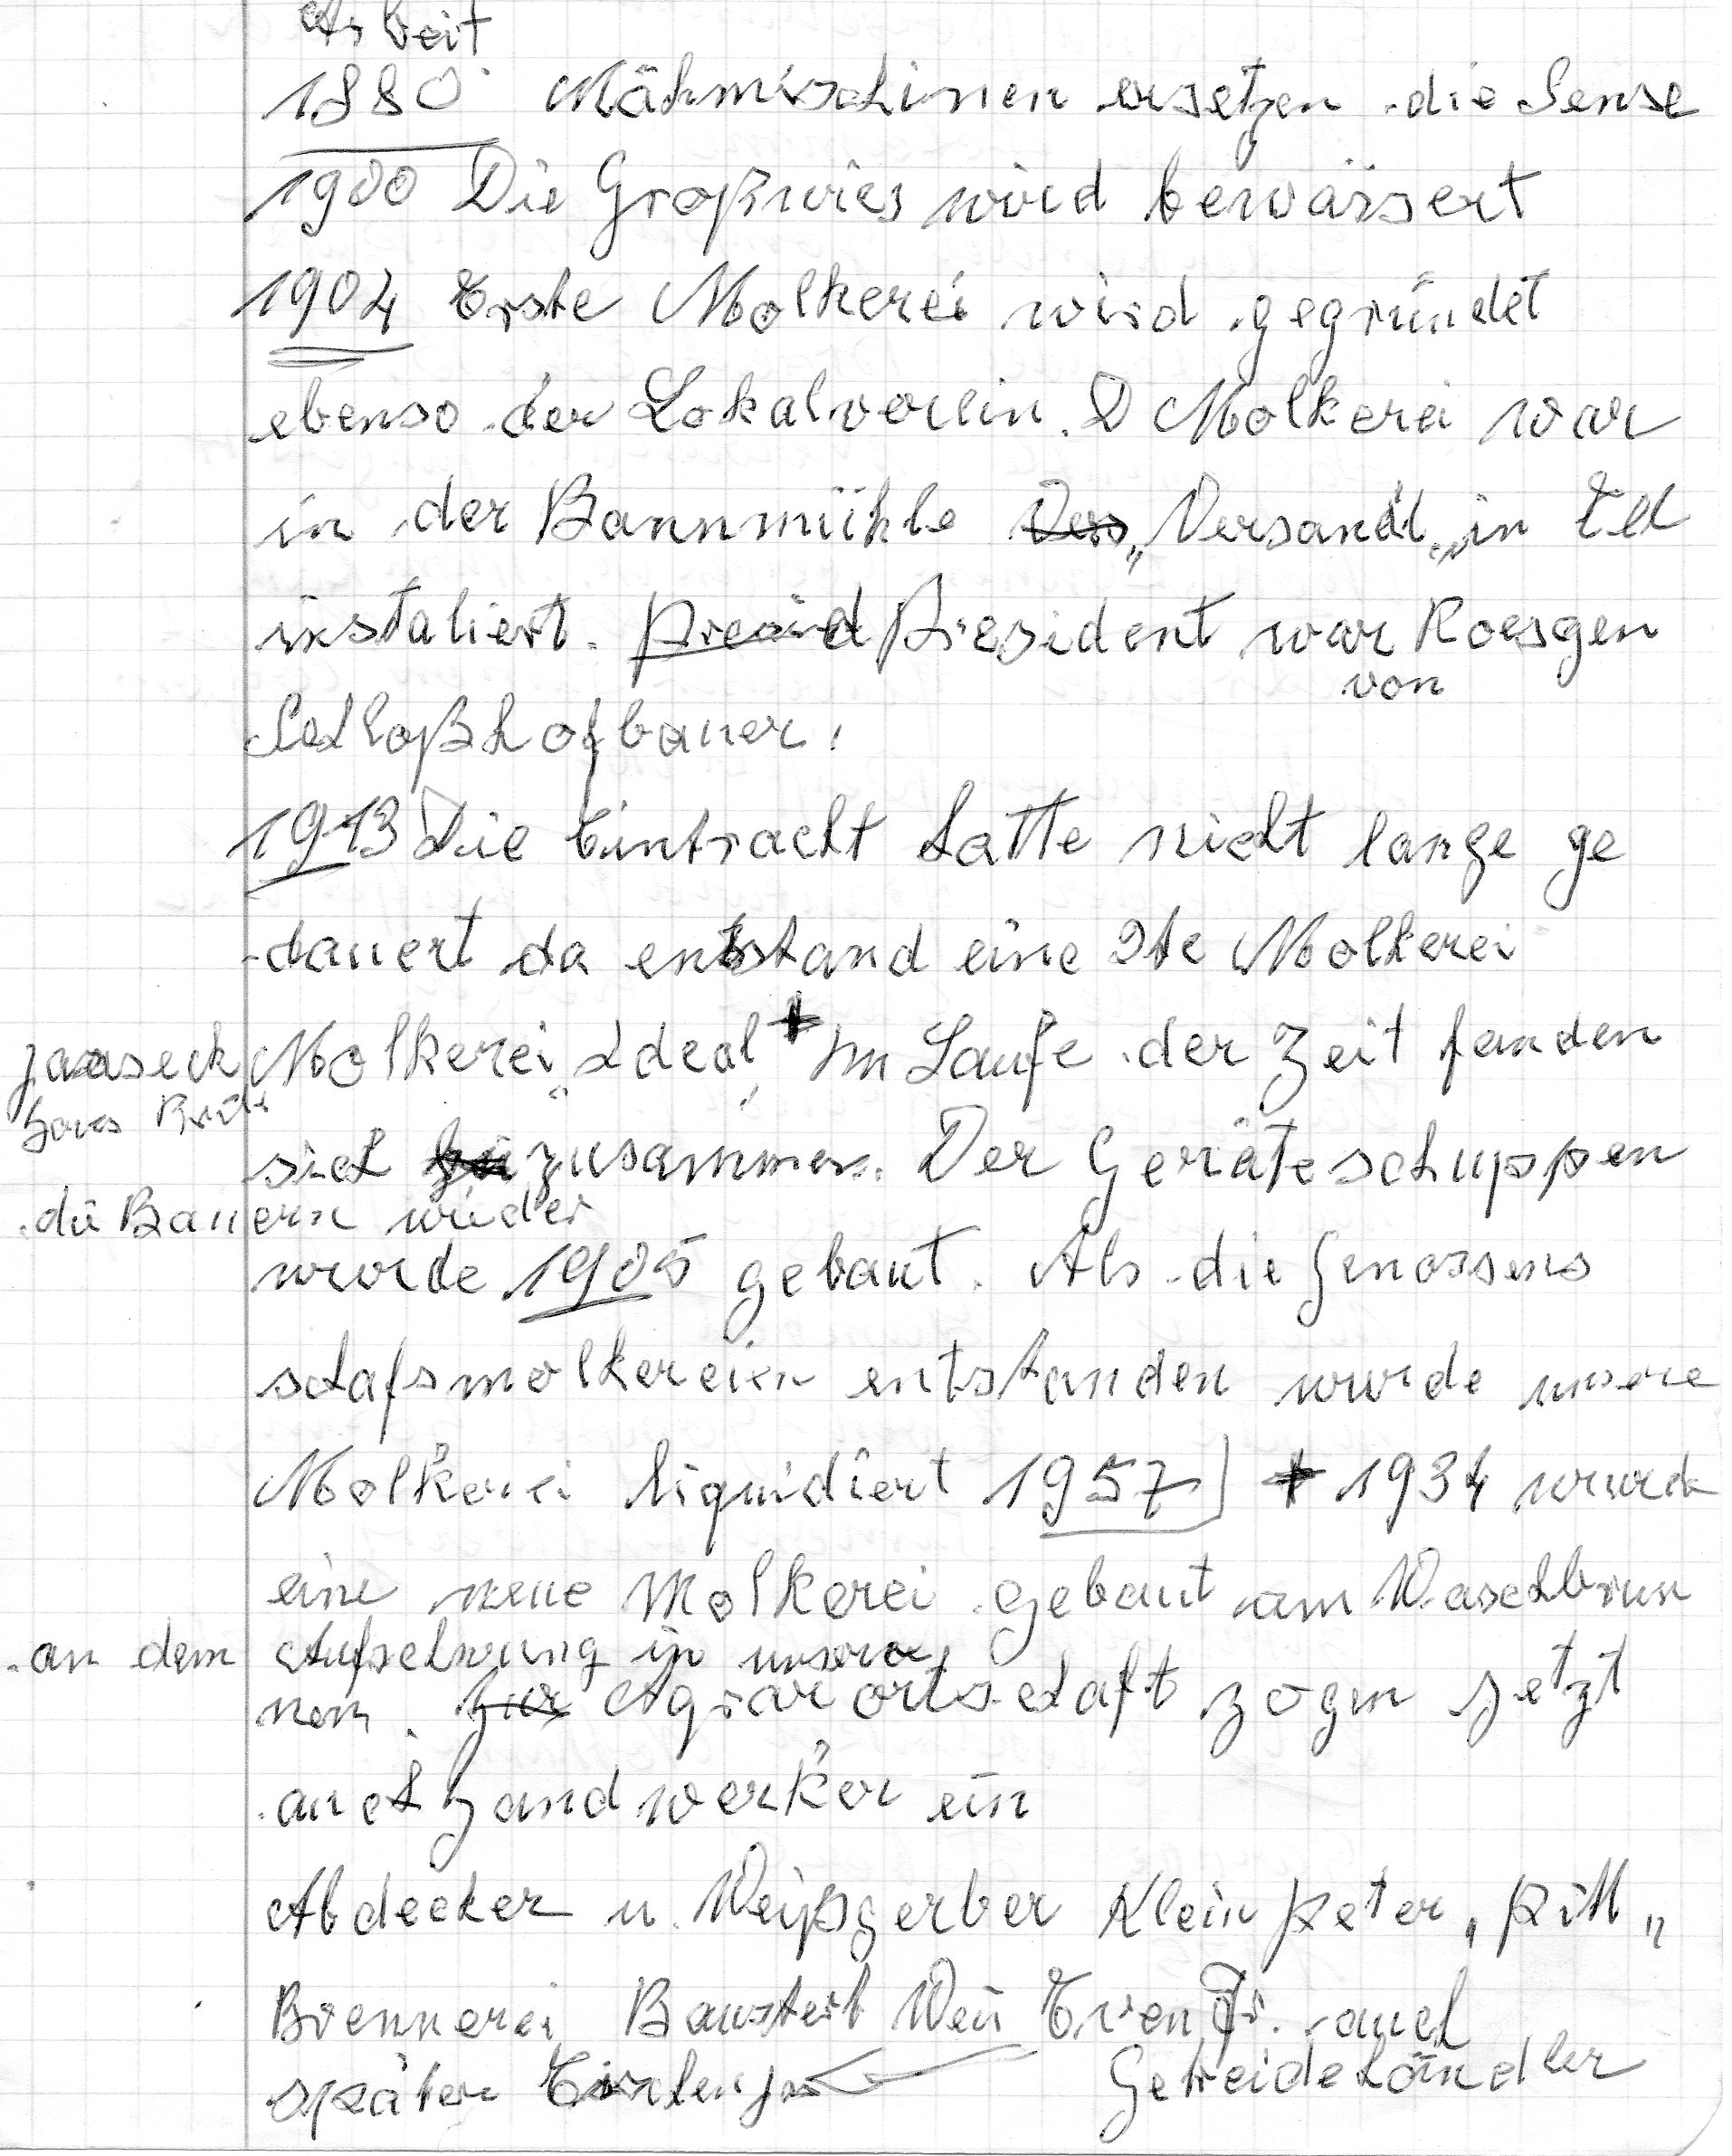 Arbeit
1880 Mähmischinen ersetzen die Sense
1900 Die Großwies wird bewässert
1904 Erste Molkerei wird gegründet
ebenso der Lokalverein. D Molkerei war
in der Bannmühle Vers „Versandt„ in Ell
instaliert. Presid President war Roesgen
von
Schloßhofbauer.
1913 Die Eintracht hatte nicht lange ge
dauert da entstand eine 2te Molkerei
Molkerei „Ideal„ + Im Laufe der Zeit fanden
sich zusammen. Der Geräteschuppen
die Bauern wieder
wurde 1905 gebaut. Als die Genossens
schafsmolkereien entstanden wurde unsere
Molkerei liquidiert 1957 + 1934 wurde
eine neue Molkerei gebaut am Waschbrun
an dem Aufschwung in unsere
nen. Zur Agrarortschaft zogen jetzt
auch Handwerker ein
Abdecker u. Weißgerber Klein Peter „Pitt„
Brennerei Baustert Even Jos. auch
später Getreidehändler